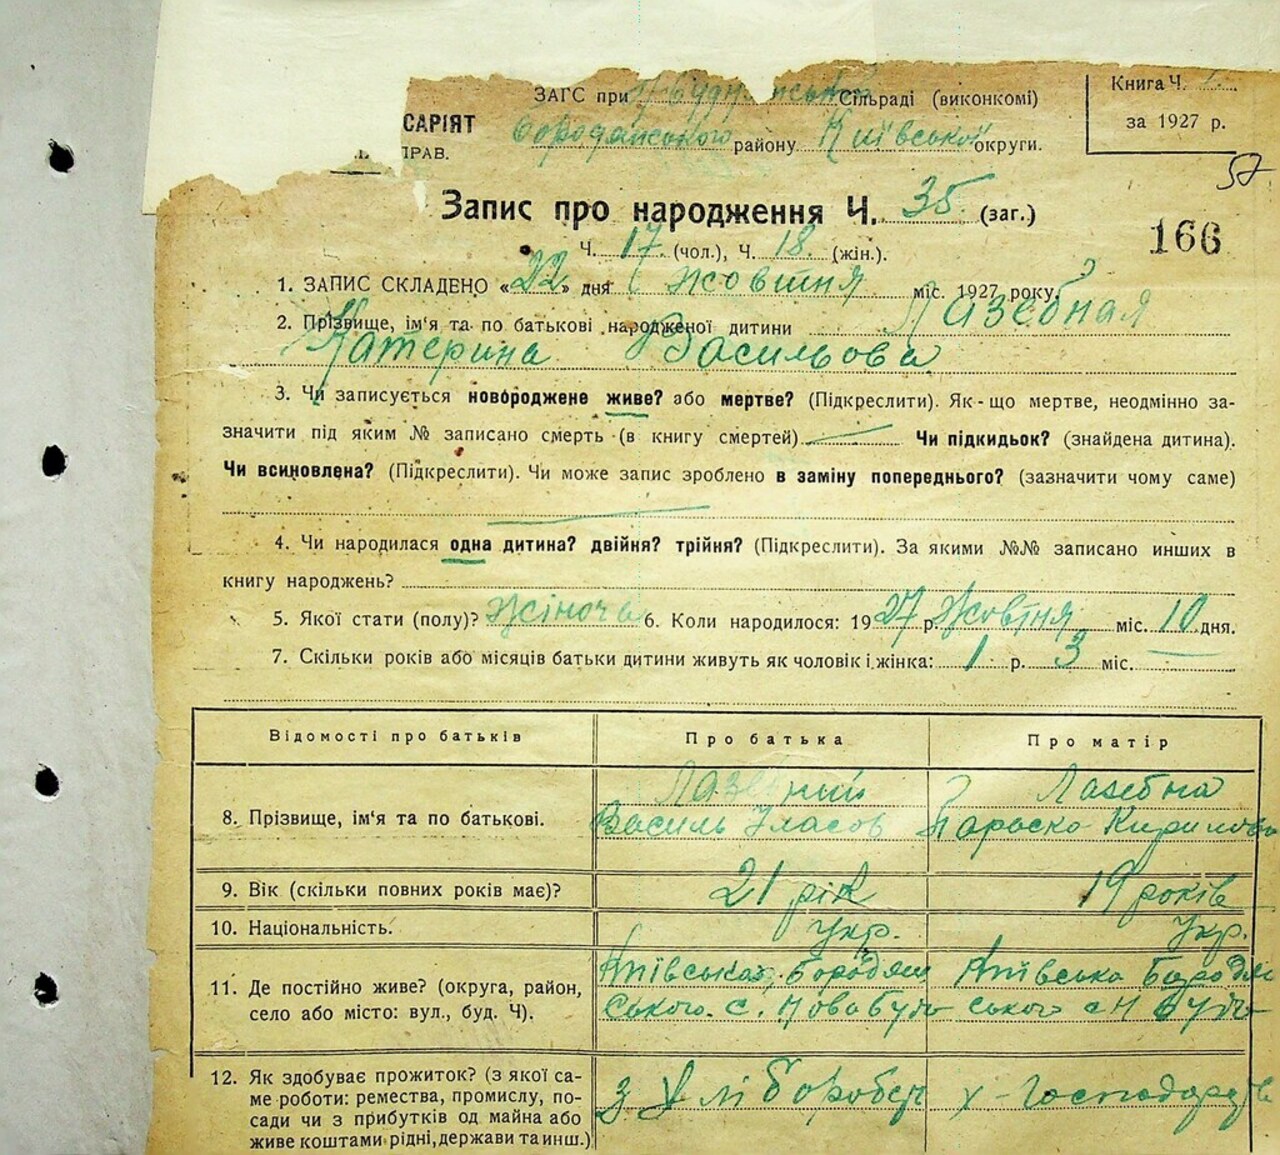 ЗАГС при Сільраді (виконкомі)
Книга Ч.
САРІЯТ
Бородянського району Київської округи.
за 1927 р.
ПРАВ.
57
Запис про народження Ч. 35 (заг.)
166
Ч. 17 (чол.), Ч. 18 (жін.).
1. ЗАПИС СКЛАДЕНО «22» дня Жовтня міс. 1927 року.
2. Прізвище, ім'я та по батькові народженої дитини Лазебная
Катерина Васильова
3. Чи записується новороджене живе? або мертве? (Підкреслити). Як-що мертве, неодмінно за-
значити під яким № записано смерть (в книгу смертей) Чи підкидьок? (знайдена дитина).
Чи всиновлена? (Підкреслити). Чи може запис зроблено в заміну попереднього? (зазначити чому саме)
4. Чи народилася одна дитина? двійня? трійня? (Підкреслити). За якими №№ записано инших в
книгу народжень?
5. Якої стати (полу)? Жіноча 6. Коли народилося: 1927 р. Жовтня міс. 10 дня.
7. Скільки років або місяців батьки дитини живуть як чоловік і жінка: 1 р. 3 міс.
Відомості про батьків Про батька Про матір
8. Прізвище, ім'я та по батькові.
Лазебний
Василь Уласов
Лазебна
Параска Кирилова
9. Вік (скільки повних років має)? 21 рік 19 років
10. Національність. Укр. Укр.
11. Де постійно живе? (округа, район,
село або місто: вул., буд. Ч).
Київська, Бородян
ського с. Нова буда
Київська Бородян
ського с Н буда
12. Як здобуває прожиток? (з якої са-
ме роботи: ремества, промислу, по-
сади чи з прибутків од майна або
живе коштами рідні, держави та инш.)
з
х-